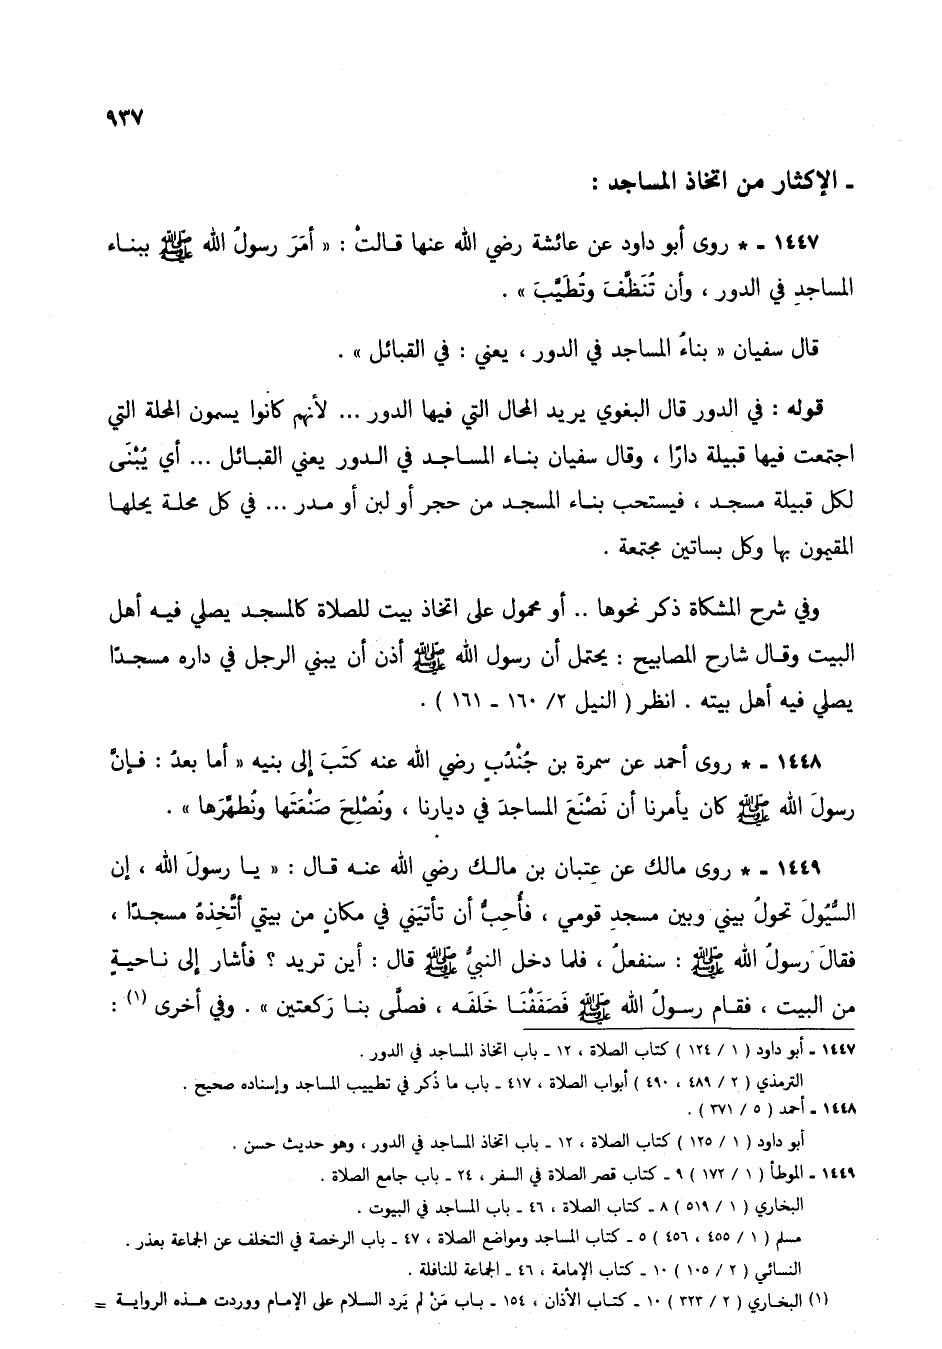 ٩٣٧
ـ الإكثار من اتخاذ المساجد :
١٤٤٧ ـ * روى أبو داود عن عائشة رضي الله عنها قالتْ : « أمَرَ رسولُ الله ﷺ ببناء
المساجدِ في الدور ، وأن تُنَظَّفَ وتُطَيَّبَ » .
قال سفيان « بناءُ المساجد في الدور ، يعني : في القبائل » .
قوله : في الدور قال البغوي يريد المحال التي فيها الدور ... لأنهم كانوا يسمون المحلة التي
اجتمعت فيها قبيلة دارًا ، وقال سفيان بناء المساجد في الدور يعني القبائل ... أي يُبْنَى
لكل قبيلة مسجد ، فيستحب بناء المسجد من حجر أو لبن أو مدر ... في كل محلة يحلها
المقيمون بها وكل بساتين مجتمعة .
وفي شرح المشكاة ذكر نحوها .. أو محمول على اتخاذ بيت للصلاة كالمسجد يصلي فيه أهل
البيت وقال شارح المصابيح : يحتمل أن رسول الله ﷺ أذن أن يبني الرجل في داره مسجدًا
يصلي فيه أهل بيته . انظر ( النيل ٢/ ١٦٠ ـ ١٦١ ) .
١٤٤٨ ـ * روى أحمد عن سمرة بن جُنْدُبٍ رضي الله عنه كتَبَ إلى بنيه « أما بعدُ : فإنَّ
رسولَ الله ﷺ كان يأمرنا أن نَصْنَعَ المساجدَ في ديارنا ، ونُصْلِحَ صَنْعَتَها ونُطهِّرَها » .
١٤٤٩ ـ * روى مالك عن عتبان بن مالك رضي الله عنه قال : « يا رسولَ الله ، إن
السُّيُولَ تحولُ بيني وبين مسجدِ قومي ، فأُحِبُّ أن تأتيَني في مكانٍ من بيتي أتَّخِذهُ مسجدًا ،
فقالَ رسولُ الله ﷺ : سنفعلُ ، فلما دخل النبيُّ ﷺ قال : أين تريد ؟ فأشار إلى ناحيةٍ
من البيت ، فقام رسولُ الله ﷺ فَصَفَفْنَا خَلفَه ، فصلَّى بنا رَكعتين » . وفي أخرى (١) :
١٤٤٧ ـ أبو داود ( ١ / ١٢٤ ) كتاب الصلاة ، ١٢ ـ باب اتخاذ المساجد في الدور .
الترمذي ( ٢ / ٤٨٩ ، ٤٩٠ ) أبواب الصلاة ، ٤١٧ ـ باب ما ذُكر في تطييب المساجد وإسناده صحيح .
١٤٤٨ ـ أحمد ( ٥ / ٣٧١ ) .
أبو داود ( ١ / ١٢٥ ) كتاب الصلاة ، ١٢ ـ باب اتخاذ المساجد في الدور ، وهو حديث حسن .
١٤٤٩ ـ الموطأ ( ١ / ١٧٢ ) ٩ ـ كتاب قصر الصلاة في السفر ، ٢٤ ـ باب جامع الصلاة .
البخاري ( ١ / ٥١٩ ) ٨ ـ كتاب الصلاة ، ٤٦ ـ باب المساجد في البيوت .
مسلم ( ١ / ٤٥٥ ، ٤٥٦ ) ٥ ـ كتاب المساجد ومواضع الصلاة ، ٤٧ ـ باب الرخصة في التخلف عن الجماعة بعذر .
النسائي ( ٢ / ١٠٥ ) ١٠ ـ كتاب الإمامة ، ٤٦ ـ الجماعة للنافلة .
(١) البخاري ( ٢ / ٣٢٣ ) ١٠ ـ كتاب الأذان ، ١٥٤ ـ باب مَنْ لم يَرد السلام على الإمام ووردت هذه الرواية =